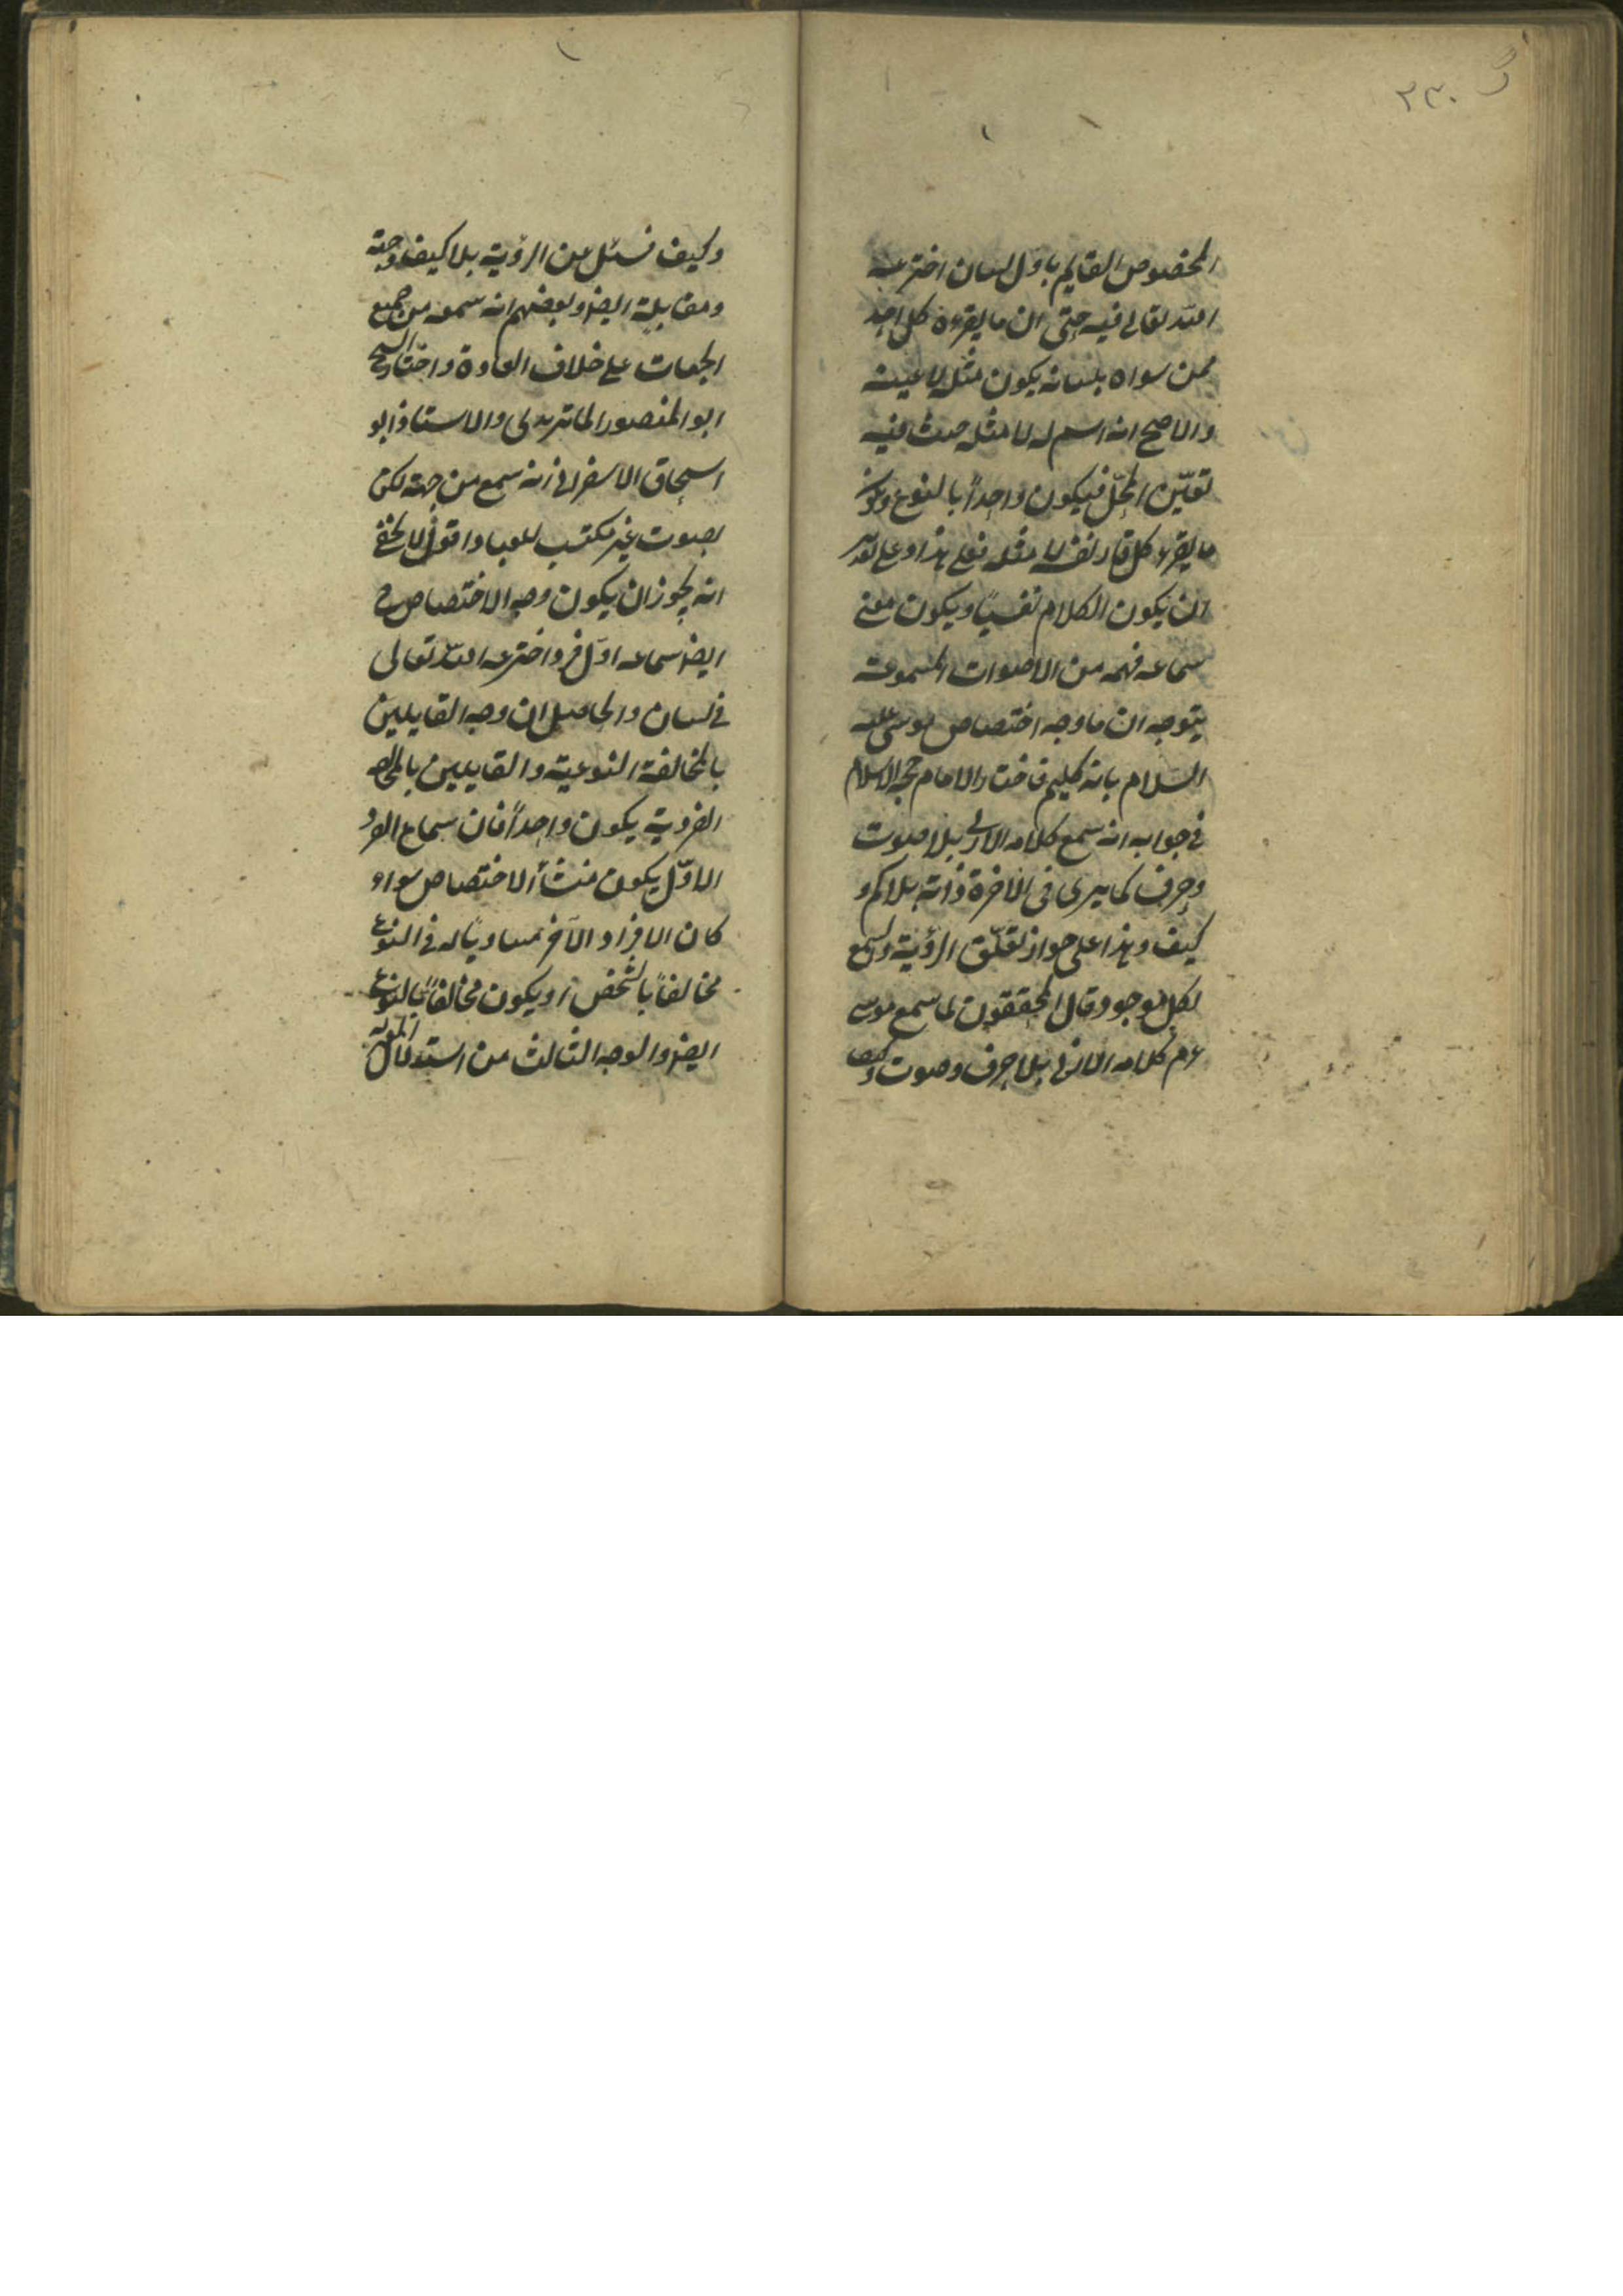 ک ٢٣٠
المخصوص القايم باوّل لسان اخترعه
اللّه تعالى فيه حتى ان ما يقرءه كل احد
ممن سواه بلسانه يكون مثله لا عينه
والاصح انه اسم له لا مثله حيث فيه
تعيّن المحلّ فيكون واحداً بالنوع ويكون
ما يقرء كل قار نفسه لا مثله فعلى هذا وعلى تقدير
ان يكون الكلام نفسيّا ويكون معنى
سماعه فهمه من الاصوات المسموعة
يتوجه ان ما وجه اختصاص موسى عليه
السّلام بانه كليم فاختار الامام حجة الاسلام
فى جوابه انه سمع كلامه الازلى بلا صوت
وحرف كما يرى فى الآخرة ذاته بلا كم و
كيف وهذا على جواز تعلّق الرؤية والسمع
لكل موجود وقال المحققون لما سمع موسى
ع م كلامه الازلى بلا حرف وصوت وكيف
وكيف نسئل من الرؤية بلا كيف وجهة
ومقابلة ايضا وبعضهم انه سمعه من جميع
الجهات على خلاف العادة واختار الشيخ
ابو المنصور الماتريدى والاستاذ ابو
اسحاق الاسفراينى انه سمع من جهة لكن
بصوت غير مكتسب للعباد اقول لا يخفى
انه يجوز ان يكون وجه الاختصاص
ايضا سماعه اوّل فرد اخترعه اللّه تعالى
فى لسان والحاصل ان وجه القايلين
بالمخالفة النوعية والقايلين بالمخالفة
الفردية يكون واحداً فان سماع الفرد
الاوّل يكون منشأ الاختصاص سواء
كان الافراد الآخر مساويا له فى النوع
مخالفاً بالشخص او يكون مخالفاً بالنوع
ايضا والوجه الثالث من استدلال المعتزلة